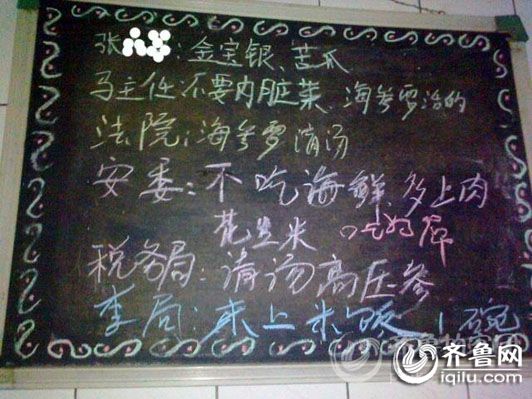 张 : 金宝银、苦瓜
马主任:不要内脏菜、海参要活的
法院:海参要清汤
安委:不吃海鲜 多上肉
花生米
税务局:清汤高压参
李局:来上米饭 1碗
齐鲁网
iqilu.com